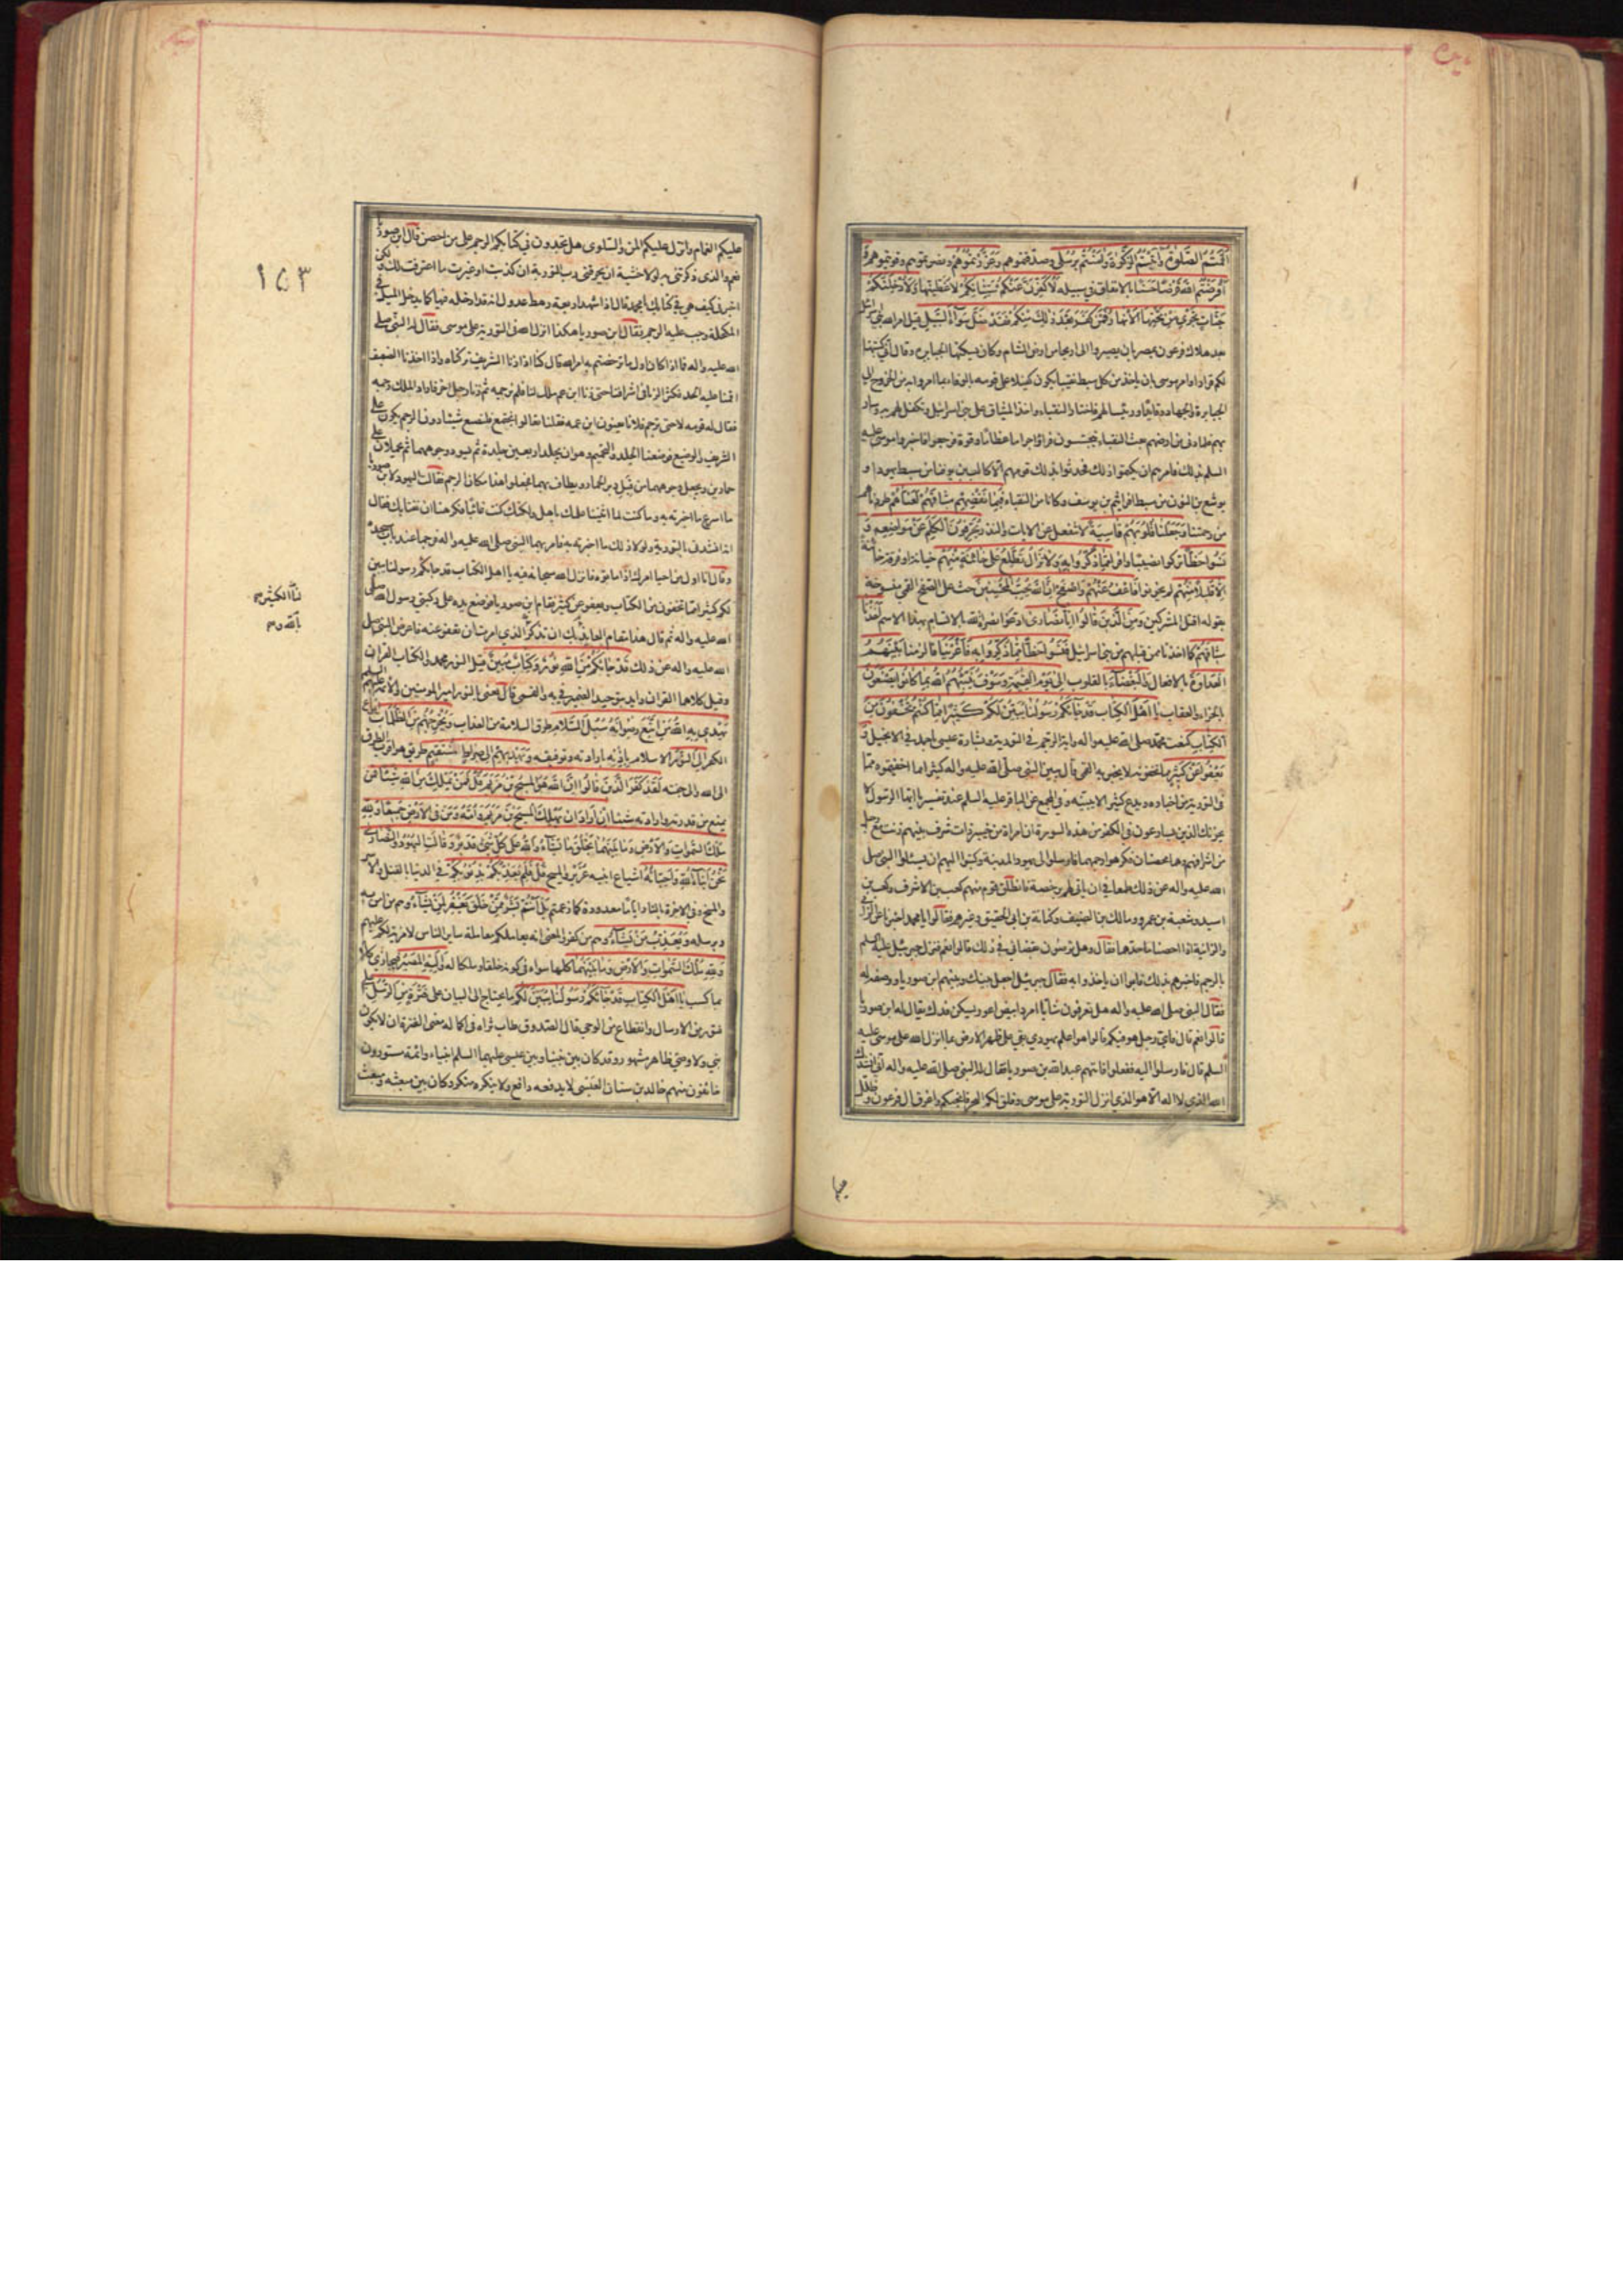 اقمتم الصلوة واتيتم الزكوة وامنتم برسلي وصدقتموهم وعزرتموهم ونصرتموهم وقويتموهم و
اقرضتم الله قرضا حسنا بالانفاق في سبيله لاكفرن عنكم سيئاتكم لاغطينها ولادخلنكم
جنات تجري من تحتها الانهار فمن كفر بعد ذلك منكم فقد ضل سواء السبيل قيل امر الله بني اسرائيل
بعد هلاك فرعون بمصر بان يصيروا الى اريحا من ارض الشام وكان يسكنها الجبابرة وقال اني كتبتها
لكم قرارا وامر موسى بان ياخذ من كل سبط نقيبا يكون كفيلا على قومه بالوفاء بما امروا به من الخروج الى
الجبابرة والجهاد
بهم فلما دنى من ارضهم بعث النقباء يتجسسون فراوا اجراما عظاما وقوة فرجعوا فاخبروا موسى عليه
السلم بذلك فامرهم ان يكتموا ذلك فحدثوا بذلك قومهم الا كالب بن يوفنا من سبط يهودا و
يوشع بن النون من سبط افرائيم بن يوسف وكانا من النقباء فبما نقضهم ميثاقهم لعناهم طردناهم
من رحمتنا وجعلنا قلوبهم قاسية لا تنفعل عن الايات والنذر يحرفون الكلم عن مواضعه و
نسوا حظا تركوا نصيبا وافرا مما ذكروا به ولا تزال تطلع على خائنة منهم خيانة او فرقة خائنة
الا قليلا منهم لم يخونوا فاعف عنهم واصفح ان الله يحب المحسنين حث على الصفح القمي منسوخة
بقوله اقتلوا المشركين ومن الذين قالوا انا نصارى ادعوا نصرة الله بهذا الاسم اخذنا
ميثاقهم كما اخذنا ممن قبلهم من بني اسرائيل فنسوا حظا مما ذكروا به فاغرينا فالزمنا بينهم
العداوة بالافعال والبغضاء بالقلوب الى يوم القيمة وسوف ينبئهم الله بما كانوا يصنعون
بالجزاء والعقاب يا اهل الكتاب قد جاءكم رسولنا يبين لكم كثيرا مما كنتم تخفون من
الكتاب كنعت محمد صلى الله عليه واله واية الرجم في التورية وبشارة عيسى باحمد في الانجيل و
يعفو عن كثير مما تخفونه لا يخبر به القمي قال يبين النبي صلى الله عليه واله كثيرا مما اخفيتموه مما
في التورية من اخباره ويدع كثيرا لا يبينه وفي المجمع عن الباقر عليه السلم عند تفسير يا ايها الرسول لا
يحزنك الذين يسارعون في الكفر من هذه السورة ان امراة من خيبر ذات شرف بينهم زنت مع رجل
من اشرافهم وهما محصنان فكرهوا رجمهما فارسلوا الى يهود المدينة وكتبوا اليهم ان يسئلوا النبي صلى
الله عليه واله عن ذلك طمعا في ان ياتي لهم برخصة فانطلق قوم منهم كعب بن الاشرف وكعب بن
اسيد وشعبة بن عمرو ومالك بن الصيف وكنانة بن ابي الحقيق وغيرهم فقالوا يا محمد اخبرنا عن الزاني
والزانية اذا احصنا ما حدهما فقال وهل ترضون بقضائي في ذلك قالوا نعم فنزل جبرئيل عليه السلم
بالرجم فاخبرهم بذلك فابوا ان ياخذوا به فقال جبرئيل اجعل بينك وبينهم ابن صوريا ووصفه له
فقال النبي صلى الله عليه واله هل تعرفون شابا امرد ابيض اعور يسكن فدك يقال له ابن صوريا
قالوا نعم قال فاي رجل هو فيكم قالوا هو اعلم يهودي بقي على ظهر الارض بما انزل الله على موسى عليه
السلم قال فارسلوا اليه ففعلوا فاتاهم عبد الله بن صوريا فقال له النبي صلى الله عليه واله اني انشدك
الله الذي لا اله الا هو الذي انزل التورية على موسى وفلق لكم البحر فانجيكم واغرق ال فرعون وظلل
عليكم الغمام وانزل عليكم المن والسلوى هل تجدون في كتابكم الرجم على من احصن قال ابن صوريا
نعم والذي ذكرتني به لولا خشية ان يحرقني رب التورية ان كذبت او غيرت ما اعترفت لك ولكن
اخبرني كيف هي في كتابك يا محمد قال اذا شهد اربعة رهط عدول انه قد ادخله فيها كما يدخل الميل في
المكحلة وجب عليه الرجم فقال ابن صوريا هكذا انزل الله في التورية على موسى فقال له النبي صلى
الله عليه واله فماذا كان اول ما ترخصتم به امر الله قال كنا اذا زنا الشريف تركناه واذا زنا الضعيف
اقمنا عليه الحد فكثر الزنا في اشرافنا حتى زنا ابن عم ملك لنا فلم نرجمه ثم زنا رجل اخر فاراد الملك رجمه
فقال له قومه لا حتى ترجم فلانا يعنون ابن عمه فقلنا تعالوا نجتمع فلنضع شيئا دون الرجم يكون على
الشريف والوضيع فوضعنا الجلد والتحميم وهو ان يجلد اربعين جلدة ثم يسود وجوههما ثم يحملان على
حمارين ويجعل وجوههما من قبل دبر الحمار ويطاف بهما فجعلوا هذا مكان الرجم فقالت اليهود لابن صوريا
ما اسرع ما اخبرته به وما كنت لما اثنينا عليك باهل ولكنك كنت غائبا فكرهنا ان نغتابك فقال
انه انشدني بالتورية ولولا ذلك ما اخبرته به فامر بهما النبي صلى الله عليه واله فرجما عند باب مسجده
وقال انا اول من احيا امرك اذا اماتوه فانزل الله سبحانه فيه يا اهل الكتاب قد جاءكم رسولنا يبين
لكم كثيرا مما تخفون من الكتاب ويعفو عن كثير فقام ابن صوريا فوضع يديه على ركبتي رسول الله صلى
الله عليه واله ثم قال هذا مقام العائذ بالله وبك ان تذكر لنا الكثير الذي امرت ان تعفو عنه فاعرض النبي صلى
الله عليه واله عن ذلك قد جاءكم من الله نور وكتاب مبين قيل النور محمد والكتاب القران
وقيل كلاهما القران وايد بتوحيد الضمير في به والقمي قال يعني بالنور امير المؤمنين والائمة عليهم السلم
يهدي به الله من اتبع رضوانه سبل السلام طرق السلامة من العذاب ويخرجهم من الظلمات انواع
الكفر الى النور الاسلام باذنه بارادته وتوفيقه ويهديهم الى صراط مستقيم طريق هو اقرب الطرق
الى الله والى جنته لقد كفر الذين قالوا ان الله هو المسيح بن مريم قل فمن يملك من الله شيئا فمن
يمنع من قدرته وارادته شيئا ان اراد ان يهلك المسيح بن مريم وامه ومن في الارض جميعا ولله
ملك السموات والارض وما بينهما يخلق ما يشاء والله على كل شيء قدير وقالت اليهود والنصارى
نحن ابناء الله واحباؤه اشياع ابنيه عزير والمسيح قل فلم يعذبكم بذنوبكم في الدنيا بالقتل والاسر
والمسخ وفي الاخرة بالنار اياما معدودة كما زعمتم بل انتم بشر ممن خلق يغفر لمن يشاء وهم من امن به
وبرسله ويعذب من يشاء وهم من كفر والمعنى انه يعاملكم معاملة ساير الناس لا مزية لكم عليهم
ولله ملك السموات والارض وما بينهما كلها سواء في كونه خلقا وملكا له واليه المصير فيجازي كلا
بما كسب يا اهل الكتاب قد جاءكم رسولنا يبين لكم ما يحتاج الى البيان على فترة من الرسل على
فتور من الارسال وانقطاع من الوحي قال الصدوق طاب ثراه في اكماله معنى الفترة ان لا يكون
نبي ولا وصي ظاهر مشهور وقد كان بين نبينا وبين عيسى عليهما السلم انبياء وائمة مستورون
خائفون منهم خالد بن سنان العبسي لا يدفعه دافع ولا ينكره منكر وكان بين مبعثه ومبعث
١٥٣
لنا الكثير
بالله و